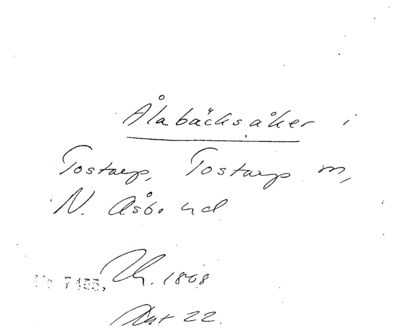 Ålabäcksåker i
Tostarp, Tostarp m,
N. Åsbo hd
1868
22.